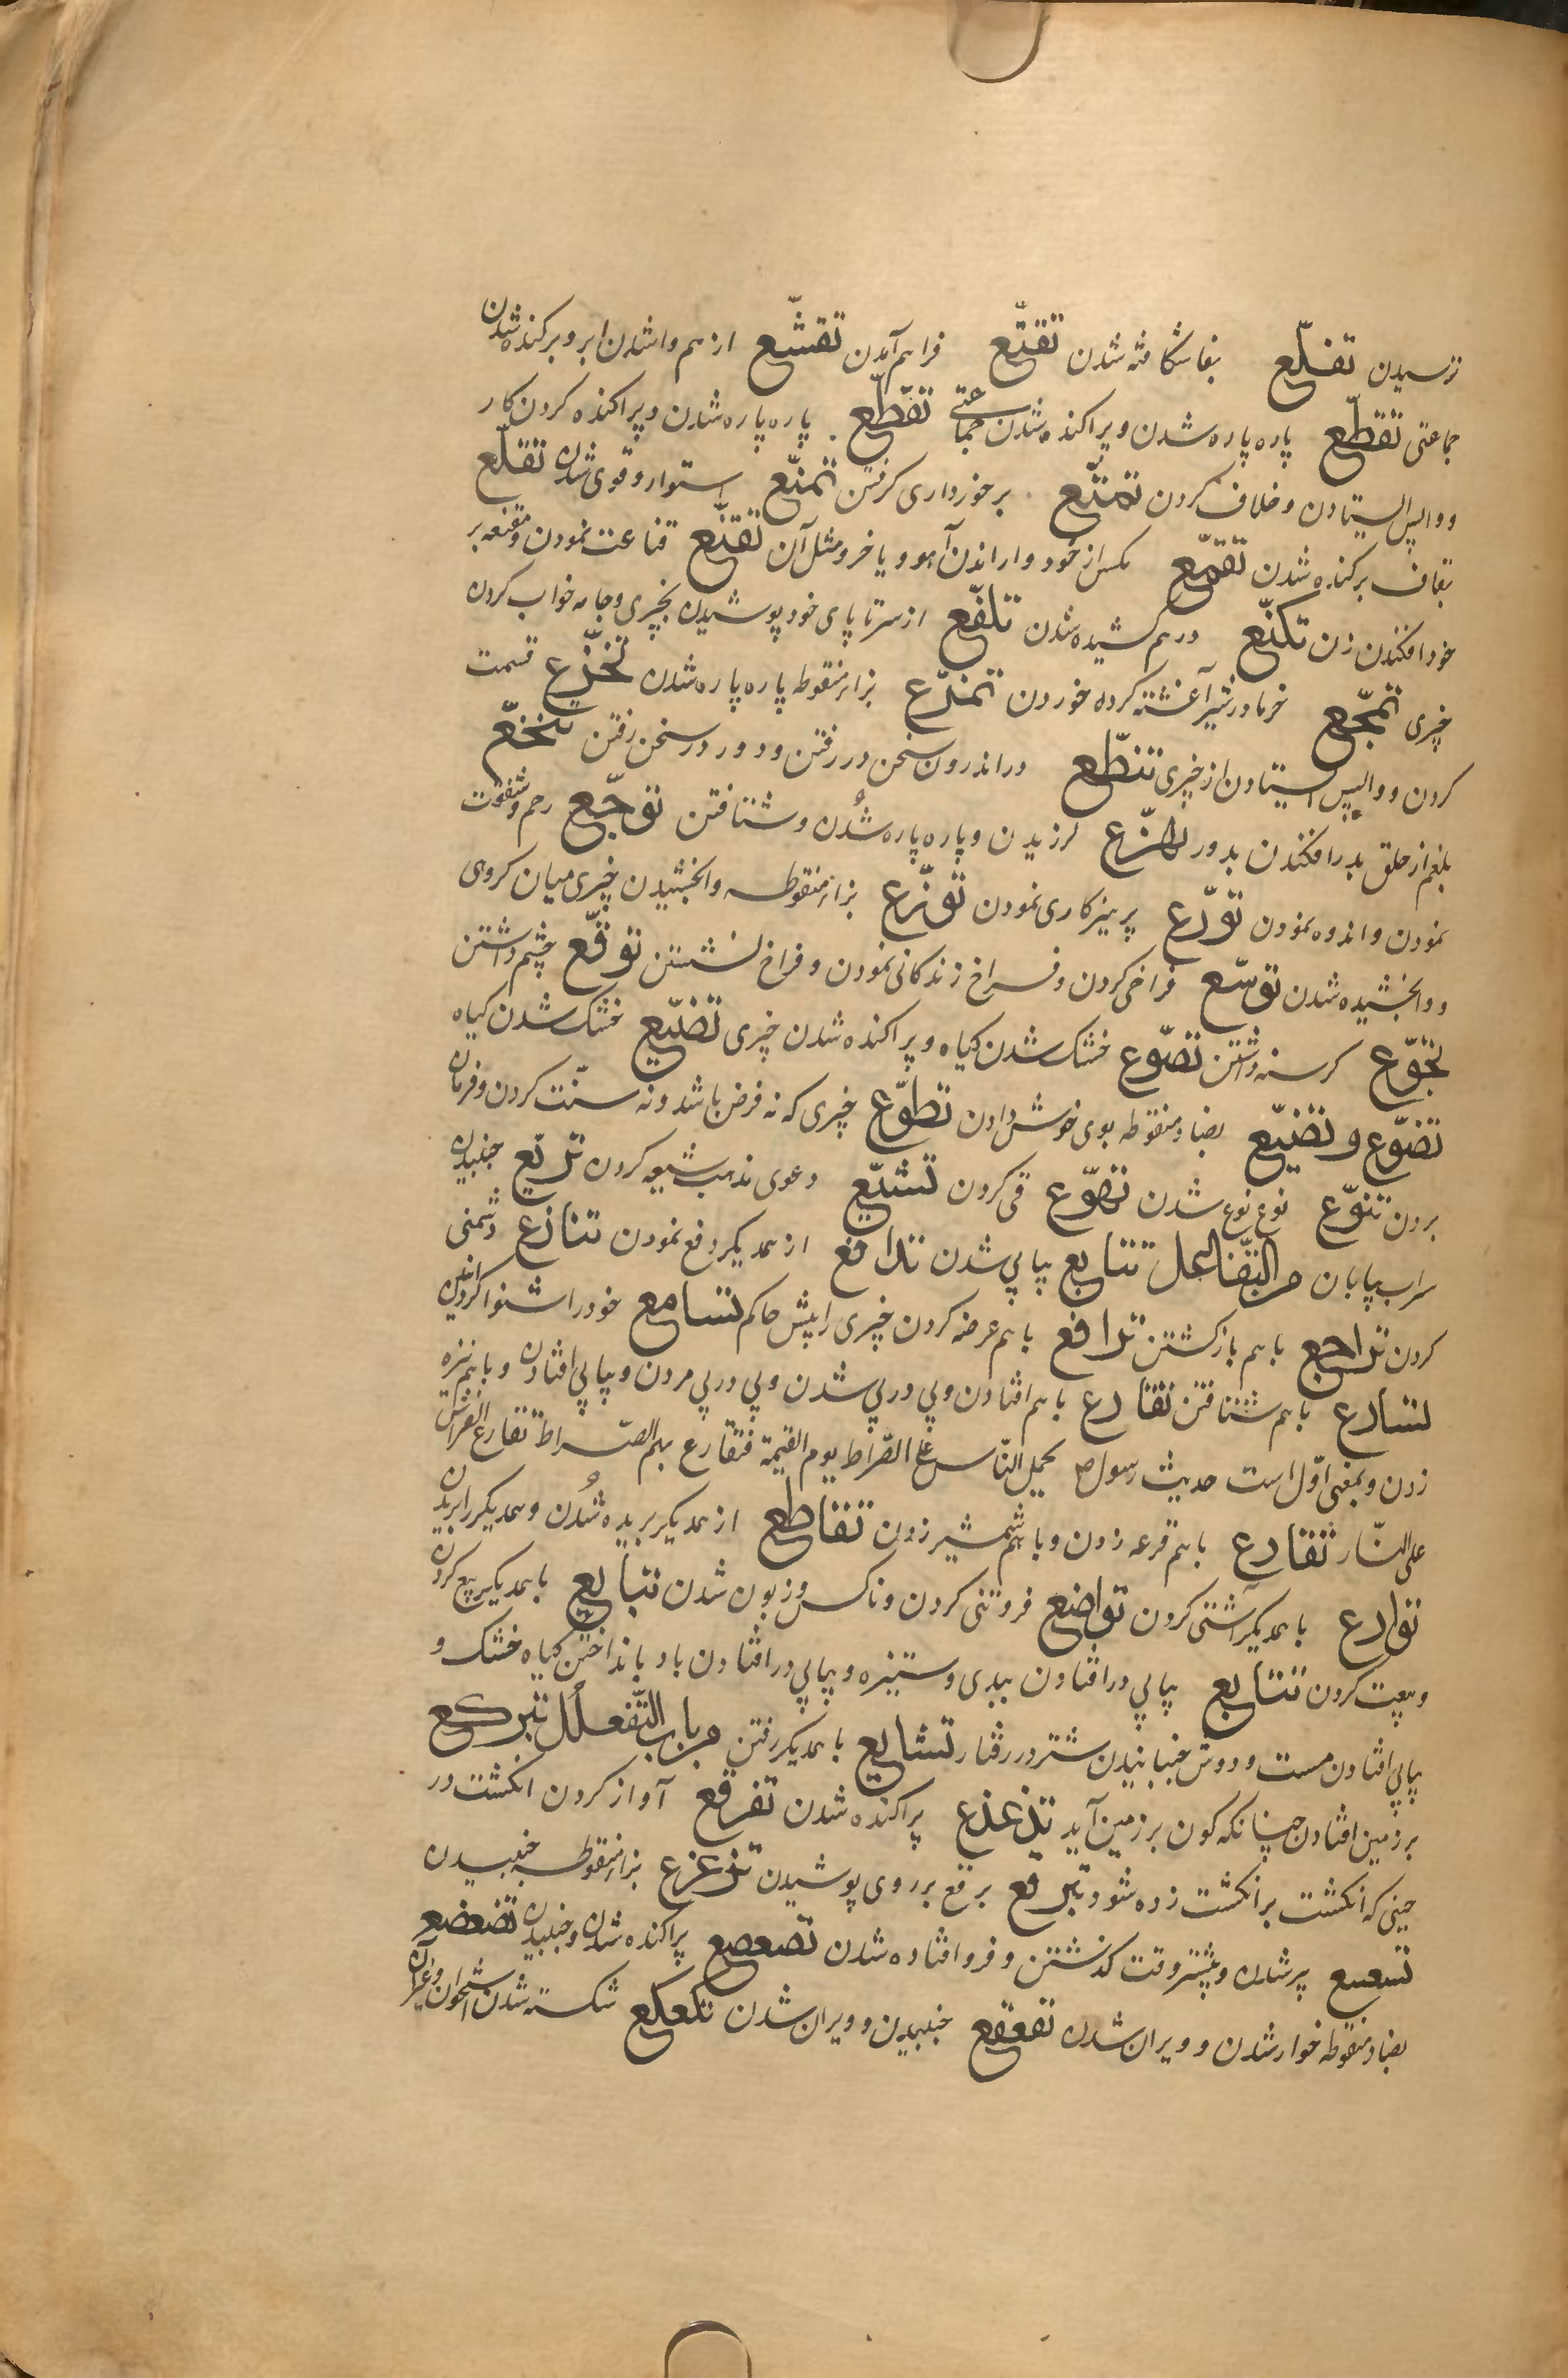 ترسیدن تفلّع بفا شکافته شدن تقبّع فراهم آمدن تقشّع از هم واشدن ابر و برکنده شدن
جماعتی تقطّع پاره پاره شدن و پراکنده شدن جماعتی تقطّع پاره پاره شدن و پراکنده کردن کار
و واپس ایستادن و خلاف کردن تمتّع برخورداری کرفتن تمنّع استوار و قوی شدن تقلّع
بقاف برکنده شدن تقمّع مکس از خود واراندن آهو و یا خر و مثل آن تقنّع قناعت نمودن و مقنعه بر
خود افکندن زن تکنّع درهم کشیده شدن تلفّع از سر تا پای خود پوشیدن بچیزی و جامه خواب کردن
چیزی تمجّع خرما در شیر آغشته کرده خوردن تمزّع بزاء منقوطه پاره پاره شدن تخزّع قسمت
کردن و واپس ایستادن از چیزی تنطّع در اندرون سخن در رفتن و دور در سخن رفتن تنخّع
بلغم از حلق بدر افکندن بدور تهزّع لرزیدن و پاره پاره شُدن و شتافتن توجّع رحم و شفقت
نمودن و اندوه نمودن تورّع پرهیزکاری نمودن توزّع بزاء منقوطه وابخشیدن چیزی میان کروهی
و وابخشیده شدن توسّع فراخی کردن و فراخ زندکانی نمودن و فراخ نشستن توقّع چشم داشتن
تجوّع کرسنه داشتن تصوّع خشک شدن کیاه و پراکنده شدن چیزی تصیّع خشک شدن کیاه
تضوّع و تضیّع بضاد منقوطه بوی خوش دادن تطوّع چیزی که نه فرض باشد و نه سنّت کردن و فرمان
بردن تنوّع نوع نوع شدن تهوّع قی کردن تشیّع دعوی مذهب شیعه کردن تریّع جنبیدن
سراب بیابان من التفاعل تتابع پیاپی شدن تدافع از همدیکر دفع نمودن تنازع دشمنی
کردن تراجع باهم بازکشتن ترافع باهم عرضه کردن چیزی را پیش حاکم تسامع خود را شنوا کردانیدن
تسارع باهم شتافتن تقادع باهم افتادن و پی در پی شدن و پی در پی مردن و پیاپی افتادن و باهم نیزه
زدن و بمعنی اوّل است حدیث رسول ص یحمل النّاس علی الصّراط یوم القیمة فتقادع بهم الصّراط تقادع الفراش
علی النّار تقارع باهم قرعه زدن و باهم شمشیر زدن تقاطع از همدیکر بریده شُدن و همدیکر را بریدن
توادع باهمدیکر آشتی کردن تواضع فروتنی کردن و ناکس و زبون شدن تبایع باهمدیکر بیع کردن
و بیعت کردن تتایع پیاپی در افتادن ببدی و ستیزه و پیاپی در افتادن باد بانداختن کیاه خشک و
پیاپی افتادن مست و دوش جنبانیدن شتر در رفتار تشایع باهمدیکر رفتن من باب التّفعلُل تبرکع
بر زمین افتادن چنانکه کون بر زمین آید تذعذع پراکنده شدن تفرقع آواز کردن انکشت در
حینی که انکشت بر انکشت زده شود تبرقع برقع بر روی پوشیدن تزعزع بزاء منقوطه جنبیدن
تسعسع پیر شدن و بیشتر وقت کذشتن و فرو افتاده شدن تصعصع پراکنده شدن و جنبیدن تضعضع
بضاد منقوطه خوار شدن و ویران شدن تقعقع جنبیدن و ویران شدن تکعکع شکسته شدن استخوان و غیر آن